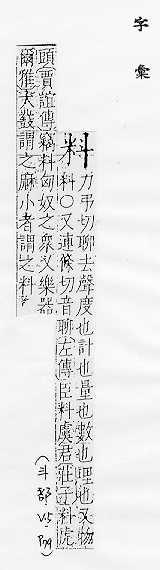 字彙
料
力弔切聊去聲度也計也量也數也理也又物
料○又連條切音聊左傳臣料虞君莊子料虎
頭賈誼傳竊料匈奴之衆又樂器
爾雅大鼗謂之麻小者謂之料
(斗部·V5·P79)